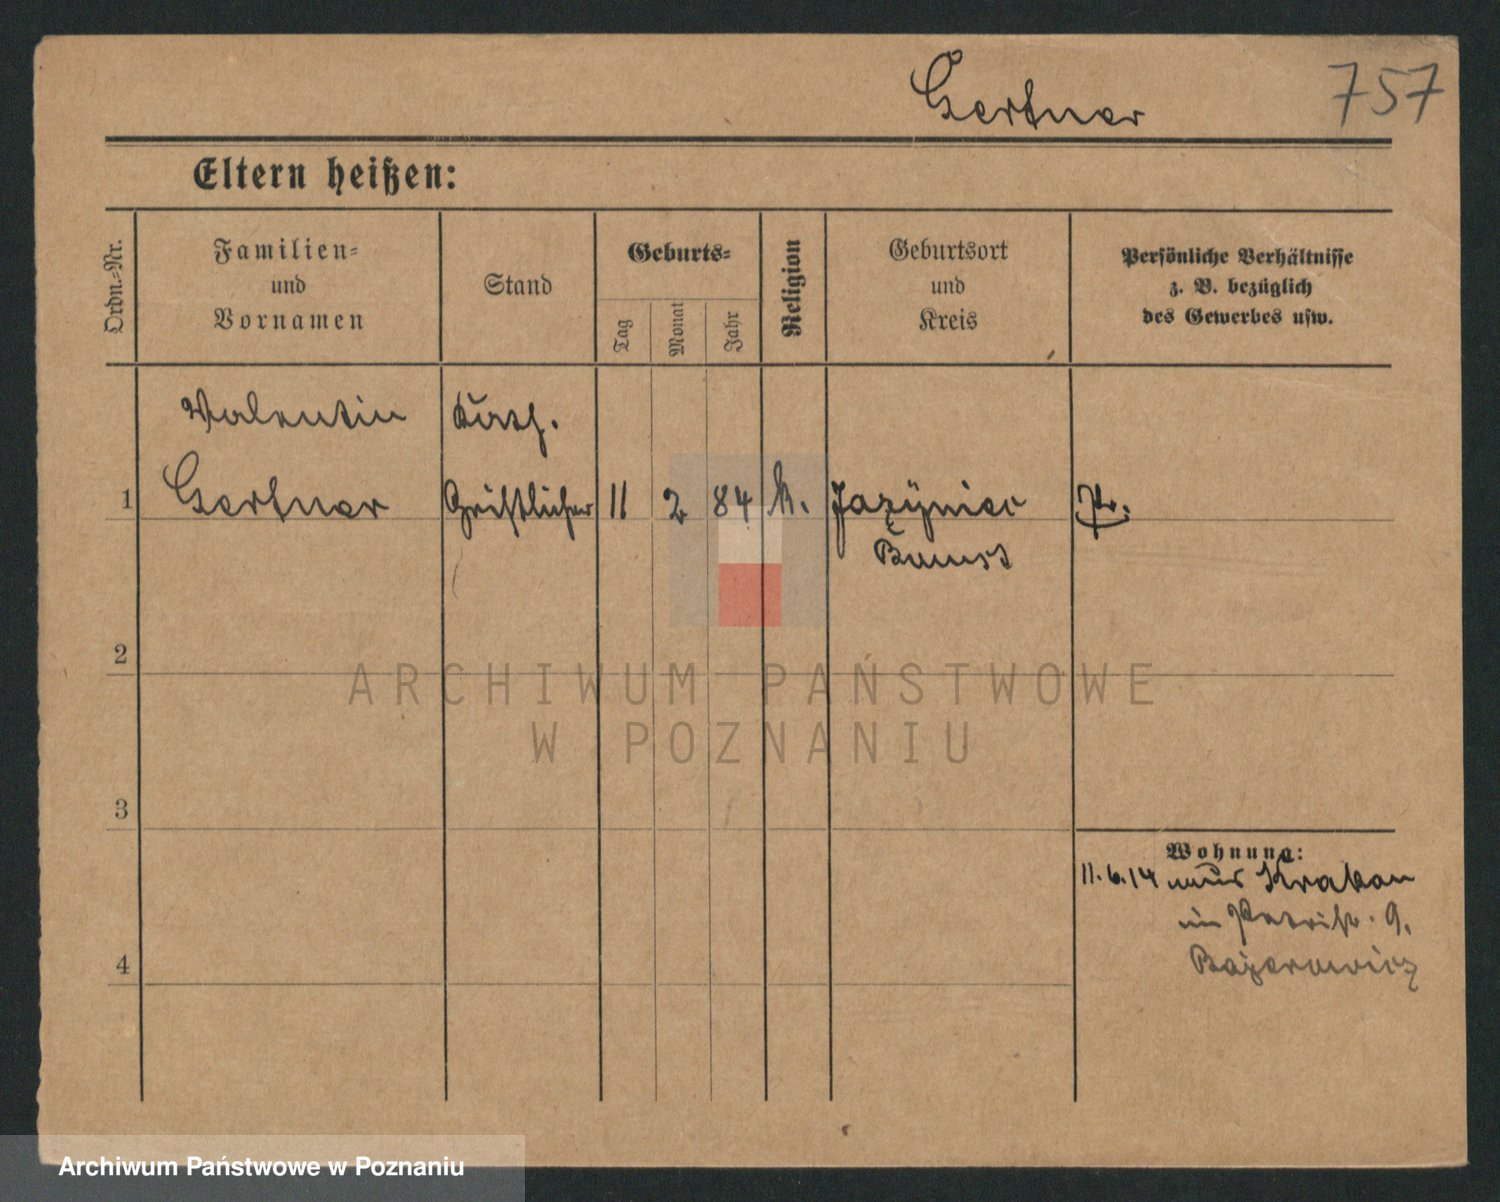 Gertner
757
Eltern heißen:
Ordn.-Nr.
Familien-
und
Vornamen
Stand
Geburts-
Tag
Monat
Jahr
Religion
Geburtsort
und
Kreis
Persönliche Verhältnisse
z. B. bezüglich
des Gewerbes usw.
Valentin
kath.
1
Gertner
Geistlicher
11
2
84
k.
Jazyniec
Bomst
Pr.
2
ARCHIWUM PAŃSTWOWE
W POZNANIU
3
Wohnung:
11.6.14 Krakau
9.
4
Archiwum Państwowe w Poznaniu